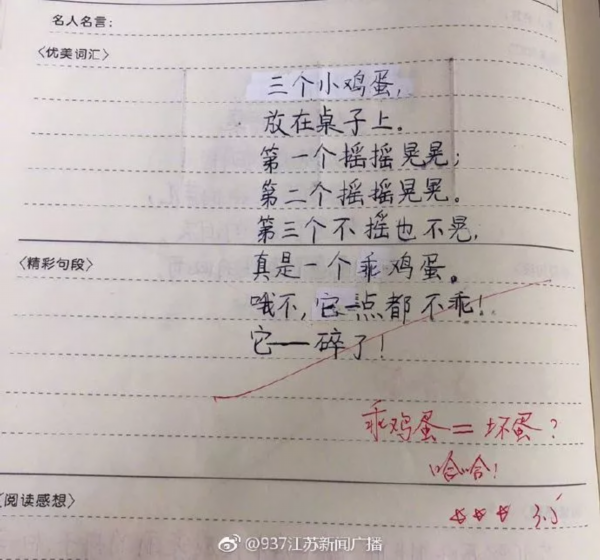 名人名言:
〈优美词汇〉
三个小鸡蛋,
放在桌子上。
第一个摇摇晃晃;
第二个摇摇晃晃。
第三个不摇也不晃,
〈精彩句段〉
真是一个乖鸡蛋。
哦不,它一点都不乖!
它——碎了!
乖鸡蛋=坏蛋?
哈哈!
〈阅读感想〉
☆☆☆
@937江苏新闻广播